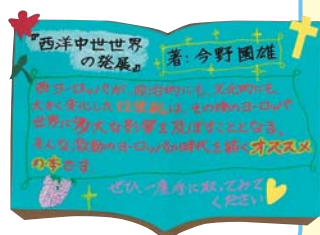 『西洋中世世界
の発展』
著:今野國雄
西ヨーロッパが、政治的にも、文化的にも、
大きく変化した12世紀は、その後のヨーロッパ
世界に多大な影響を及ぼすこととなる。
そんな、激動のヨーロッパの時代を描くオススメ
の本です
ぜひ、一度手に取ってみて
ください